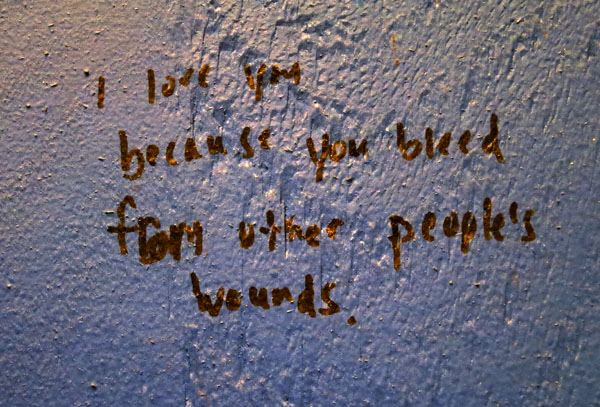 I love you
because you bleed
from other people's
wounds.